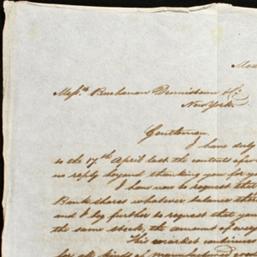 Mess.rs Buchanan Dennistoun & Co
New York
Gentlemen,
I have duly
to the 17th April last the contents of
no reply beyond thanking you for y
I have now to request that
Bank shares whatever balance ther
and I beg further to request that you
the same stock, the amount of every
This market continues
for all kinds of manufactured